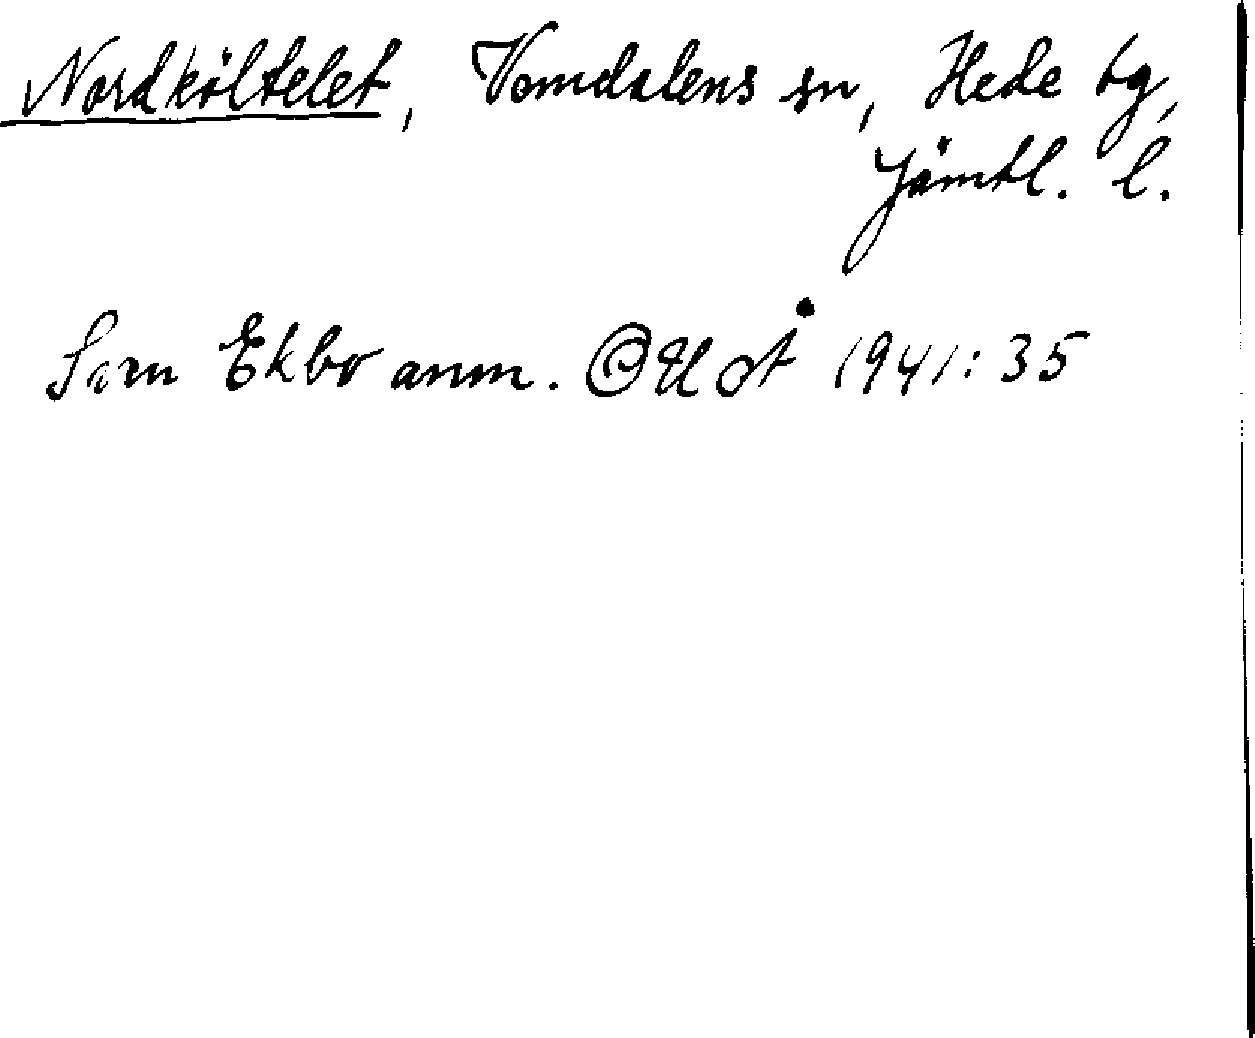 Nordköltelet, Vemdalens sn, Hede tg,
Jämtl. l.
Sven Ekbo anm. OUÅ 1941:35